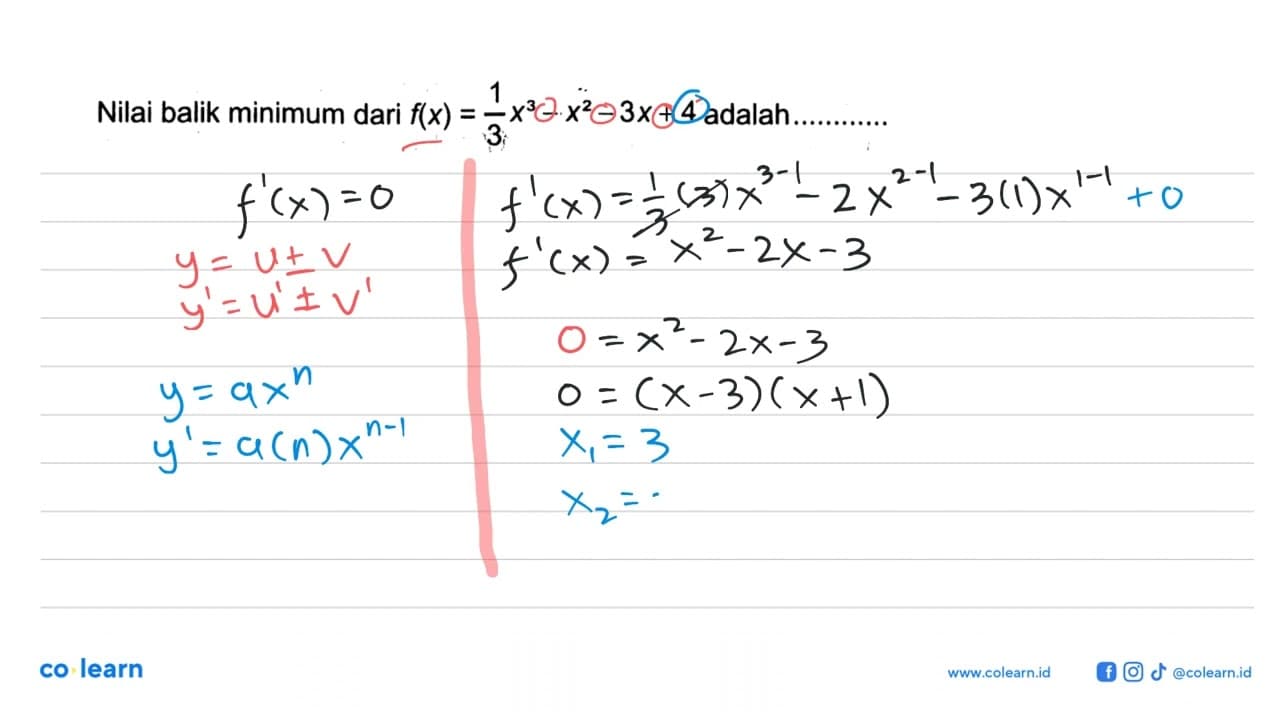 Nilai balik minimum dari f(x) = 1/3 x³ - x² - 3x + 4 adalah............
f'(x) = 0
f'(x) = 1/3 (3) x^(3-1) - 2x^(2-1) - 3(1)x^(1-1) + 0
y = u ± v
f'(x) = x² - 2x - 3
y' = u' ± v'
0 = x² - 2x - 3
y = ax^n
0 = (x - 3)(x + 1)
y' = a(n)x^(n-1)
x₁ = 3
x₂ =
co learn
www.colearn.id
@colearn.id